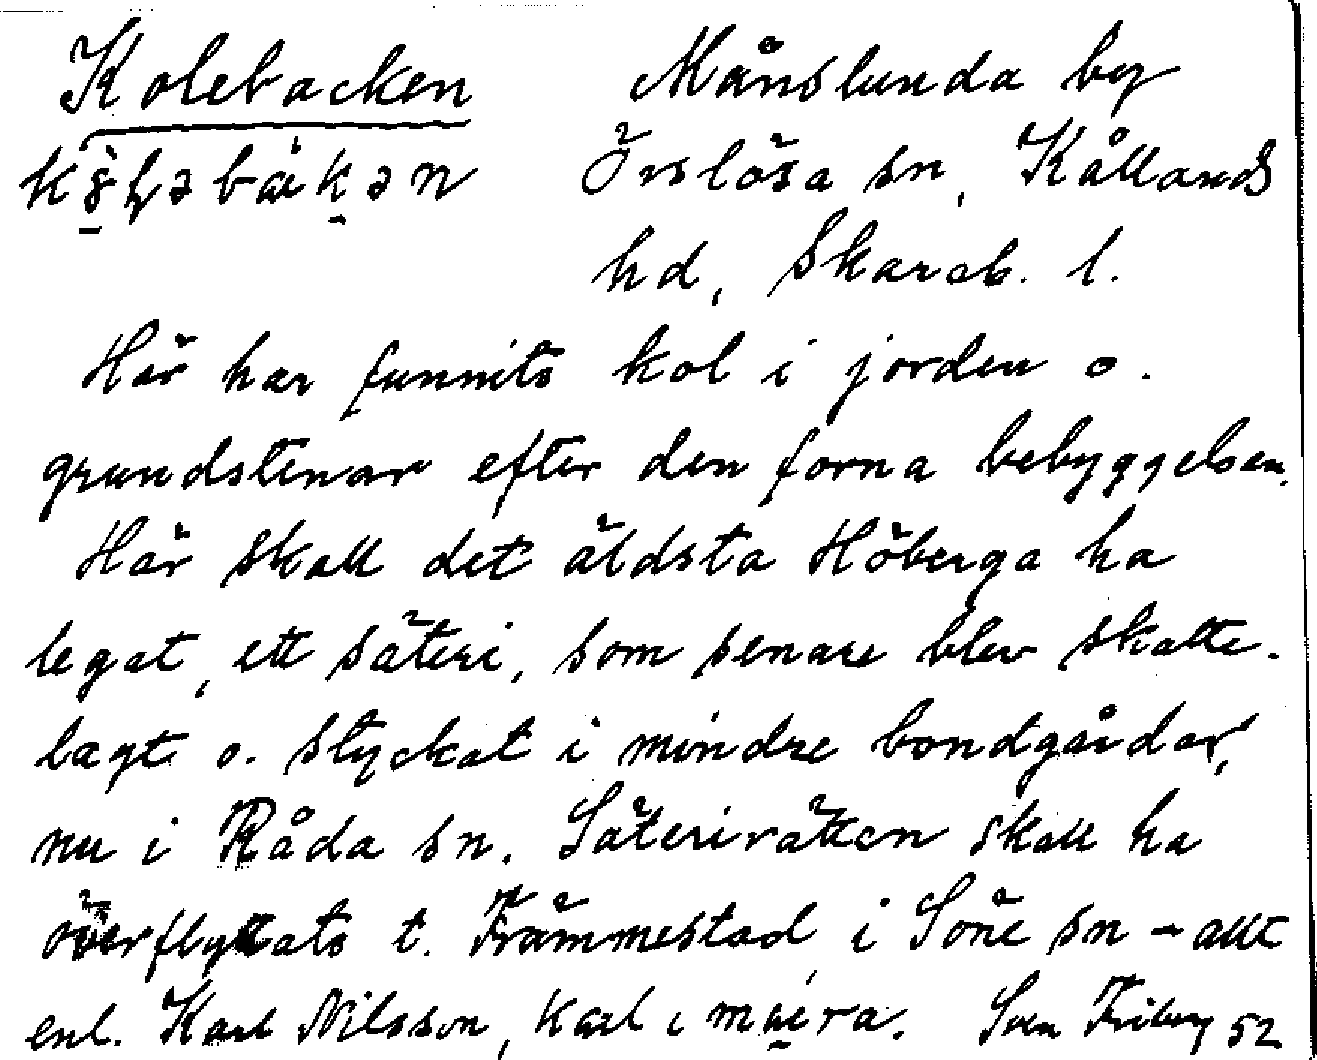 Kolebacken Månslunda by
Örslösa sn, Kållands
hd, Skarab. l.
Här har funnits kol i jorden o.
grundstenar efter den forna bebyggelsen.
Här skall det äldsta Höberga ha
legat, ett säteri, som senare blev skatte-
lagt o. styckat i mindre bondgårdar,
nu i Råda sn. Säterirätten skall ha
överflyttats t. Främmestad i Söne sn - allt
enl. Karl Nilsson, Sven Friberg 52